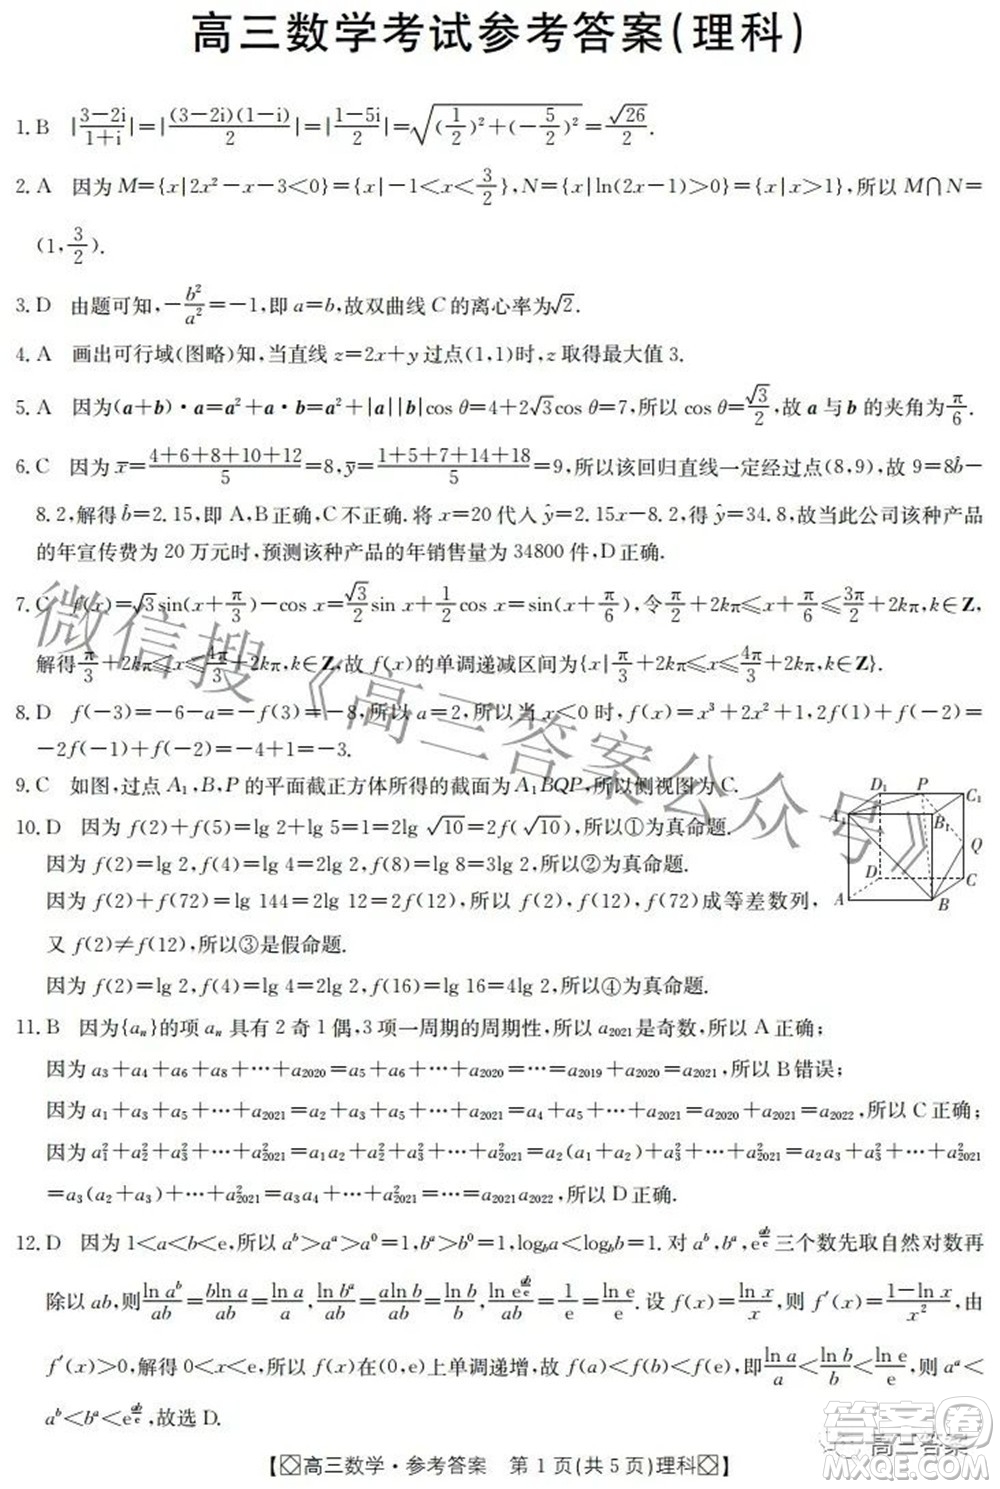 高三数学考试参考答案(理科)
1. B |3−2i/1+i|=|(3−2i)(1−i)/2|=|1−5i/2|=√((1/2)²+(−5/2)²)=√26/2.
2. A 因为 M={x|2x²−x−3<0}={x|−1<x<3/2},N={x|ln(2x−1)>0}={x|x>1},所以 M∩N=
(1,3/2).
3. D 由题可知,−b²/a²=−1,即 a=b,故双曲线 C 的离心率为√2.
4. A 画出可行域(图略)知,当直线 z=2x+y 过点(1,1)时,z 取得最大值 3.
5. A 因为(a+b)·a=a²+a·b=a²+|a||b|cos θ=4+2√3cos θ=7,所以 cos θ=√3/2,故 a 与 b 的夹角为π/6.
6. C 因为 x̄=4+6+8+10+12/5=8,ȳ=1+5+7+14+18/5=9,所以该回归直线一定经过点(8,9),故 9=8b̂−
8.2,解得 b̂=2.15,即 A,B 正确,C 不正确.将 x=20 代入 ŷ=2.15x−8.2,得 ŷ=34.8,故当此公司该种产品
的年宣传费为 20 万元时,预测该种产品的年销售量为 34800 件,D 正确.
7. C f(x)=√3sin(x+π/3)−cos x=√3/2sin x+1/2cos x=sin(x+π/6),令π/2+2kπ≤x+π/6≤3π/2+2kπ,k∈Z,
解得π/3+2kπ≤x≤4π/3+2kπ,k∈Z,故 f(x)的单调递减区间为{x|π/3+2kπ≤x≤4π/3+2kπ,k∈Z}.
8. D f(−3)=−6−a=−f(3)=−8,所以 a=2,所以当 x<0 时,f(x)=x³+2x²+1,2f(1)+f(−2)=
−2f(−1)+f(−2)=−4+1=−3.
9. C 如图,过点 A₁,B,P 的平面截正方体所得的截面为 A₁BQP,所以侧视图为 C.
D₁ P C₁
A₁ B₁
Q
D C
A B
10. D 因为 f(2)+f(5)=lg 2+lg 5=1=2lg √10=2f(√10),所以①为真命题.
因为 f(2)=lg 2,f(4)=lg 4=2lg 2,f(8)=lg 8=3lg 2,所以②为真命题.
因为 f(2)+f(72)=lg 144=2lg 12=2f(12),所以 f(2),f(12),f(72)成等差数列,
又 f(2)≠f(12),所以③是假命题.
因为 f(2)=lg 2,f(4)=lg 4=2lg 2,f(16)=lg 16=4lg 2,所以④为真命题.
11. B 因为{aₙ}的项 aₙ 具有 2 奇 1 偶,3 项一周期的周期性,所以 a₂₀₂₁是奇数,所以 A 正确;
因为 a₃+a₄+a₆+a₈+⋯+a₂₀₂₀=a₅+a₆+⋯+a₂₀₂₀=⋯=a₂₀₁₉+a₂₀₂₀=a₂₀₂₁,所以 B 错误;
因为 a₁+a₃+a₅+⋯+a₂₀₂₁=a₂+a₃+a₅+⋯+a₂₀₂₁=a₄+a₅+⋯+a₂₀₂₁=a₂₀₂₀+a₂₀₂₁=a₂₀₂₂,所以 C 正确;
因为 a₁²+a₂²+a₃²+⋯+a₂₀₂₁²=a₁a₂+a₂²+a₃²+⋯+a₂₀₂₁²=a₂(a₁+a₂)+a₃²+⋯+a₂₀₂₁²=a₂a₃+a₃²+⋯+a₂₀₂₁²
=a₃(a₂+a₃)+⋯+a₂₀₂₁²=a₃a₄+⋯+a₂₀₂₁²=a₂₀₂₁a₂₀₂₂,所以 D 正确.
12. D 因为 1<a<b<e,所以 aᵇ>aᵃ>a⁰=1,bᵃ>b⁰=1,log_b a<log_b b=1.对 aᵇ,bᵃ,e^(ab/e) 三个数先取自然对数再
除以 ab,则 ln aᵇ/ab=bln a/ab=ln a/a,ln bᵃ/ab=aln b/ab=ln b/b,ln e^(ab/e)/ab=1/e=ln e/e.设 f(x)=ln x/x,则 f′(x)=1−ln x/x²,由
f′(x)>0,解得 0<x<e,所以 f(x)在(0,e)上单调递增,故 f(a)<f(b)<f(e),即ln a/a<ln b/b<ln e/e,则 aᵃ<
aᵇ<bᵃ<e^(ab/e),故选 D.
【◇高三数学·参考答案 第 1 页(共 5 页)理科◇】
微信搜《高三答案公众号》
高三答案
答案圈
MXQE.COM